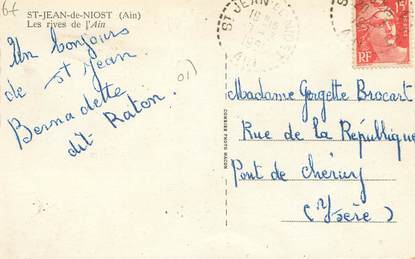 67
ST-JEAN-de-NIOST (Ain)
Les rives de l'Ain
Un bonjour
de St Jean
Bernadette
dit Raton.
01)
ST JEAN
15F
RF
Madame Georgette Brocart
Rue de la République
Pont de Chéruy
(Isère)
COMBIER PHOTO MACON